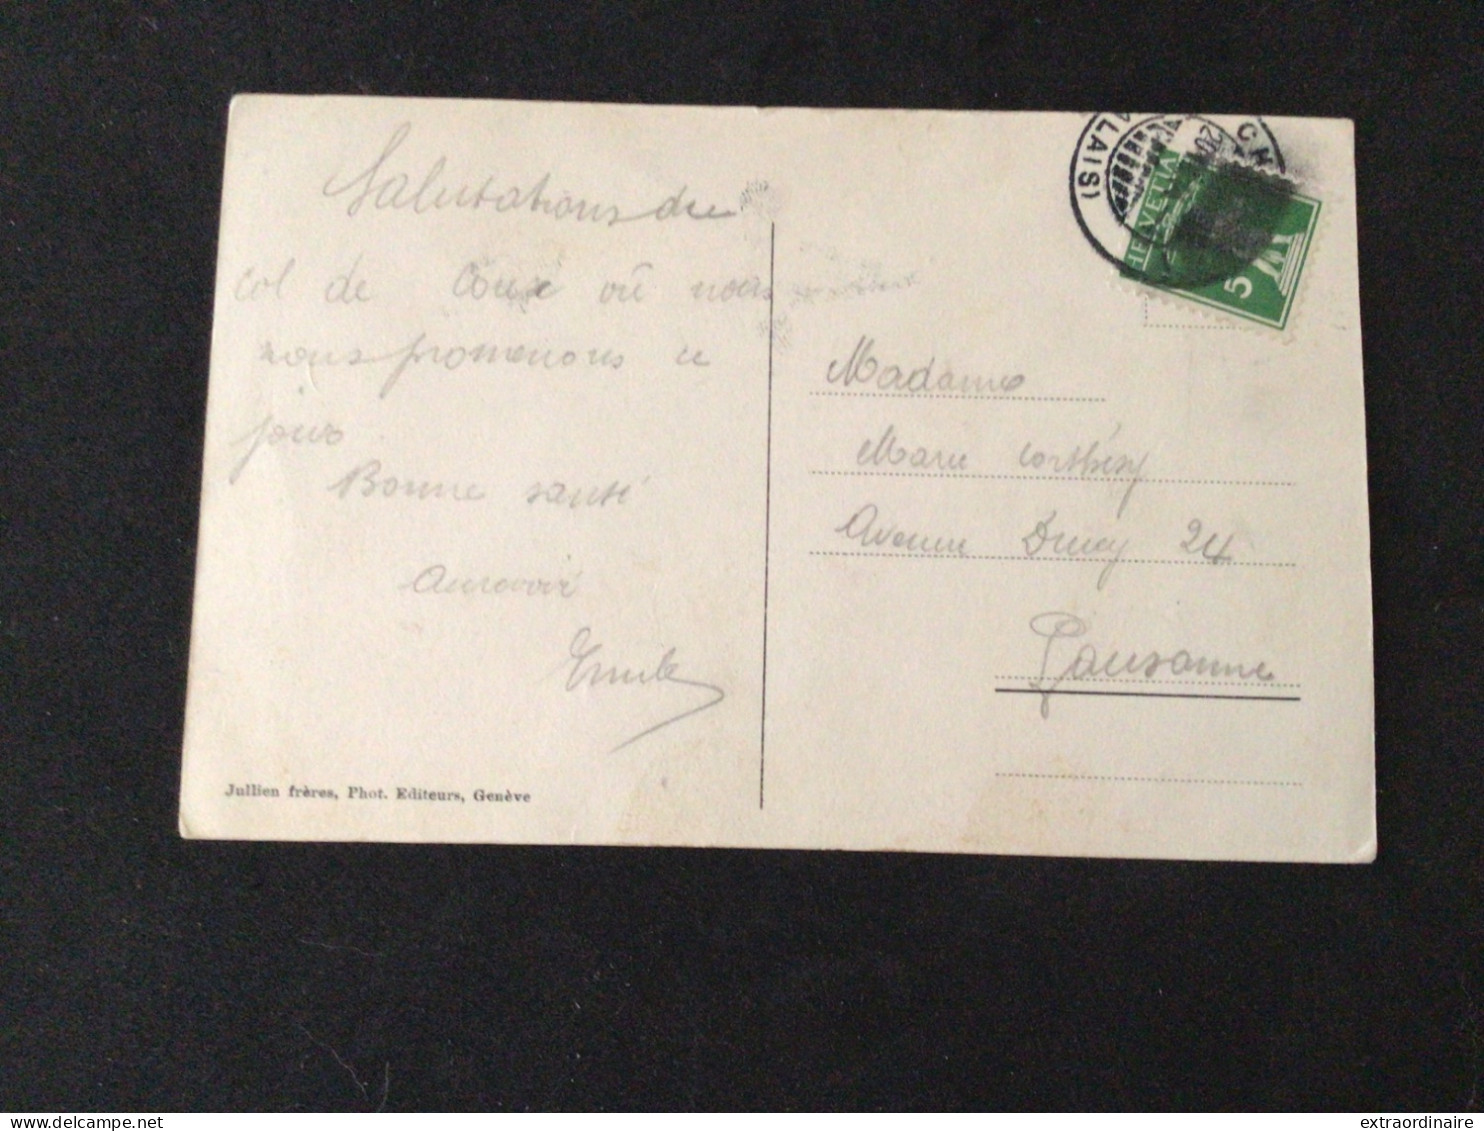 Salutations du
col de Coux où nous
nous promenons ce
jour
Bonne santé
Aurevoir
Emile
Jullien frères, Phot. Editeurs, Genève
HELVETIA
5
Madame
Marie Corthésy
Avenue Druey 24
Lausanne
www.delcampe.net
extraordinaire